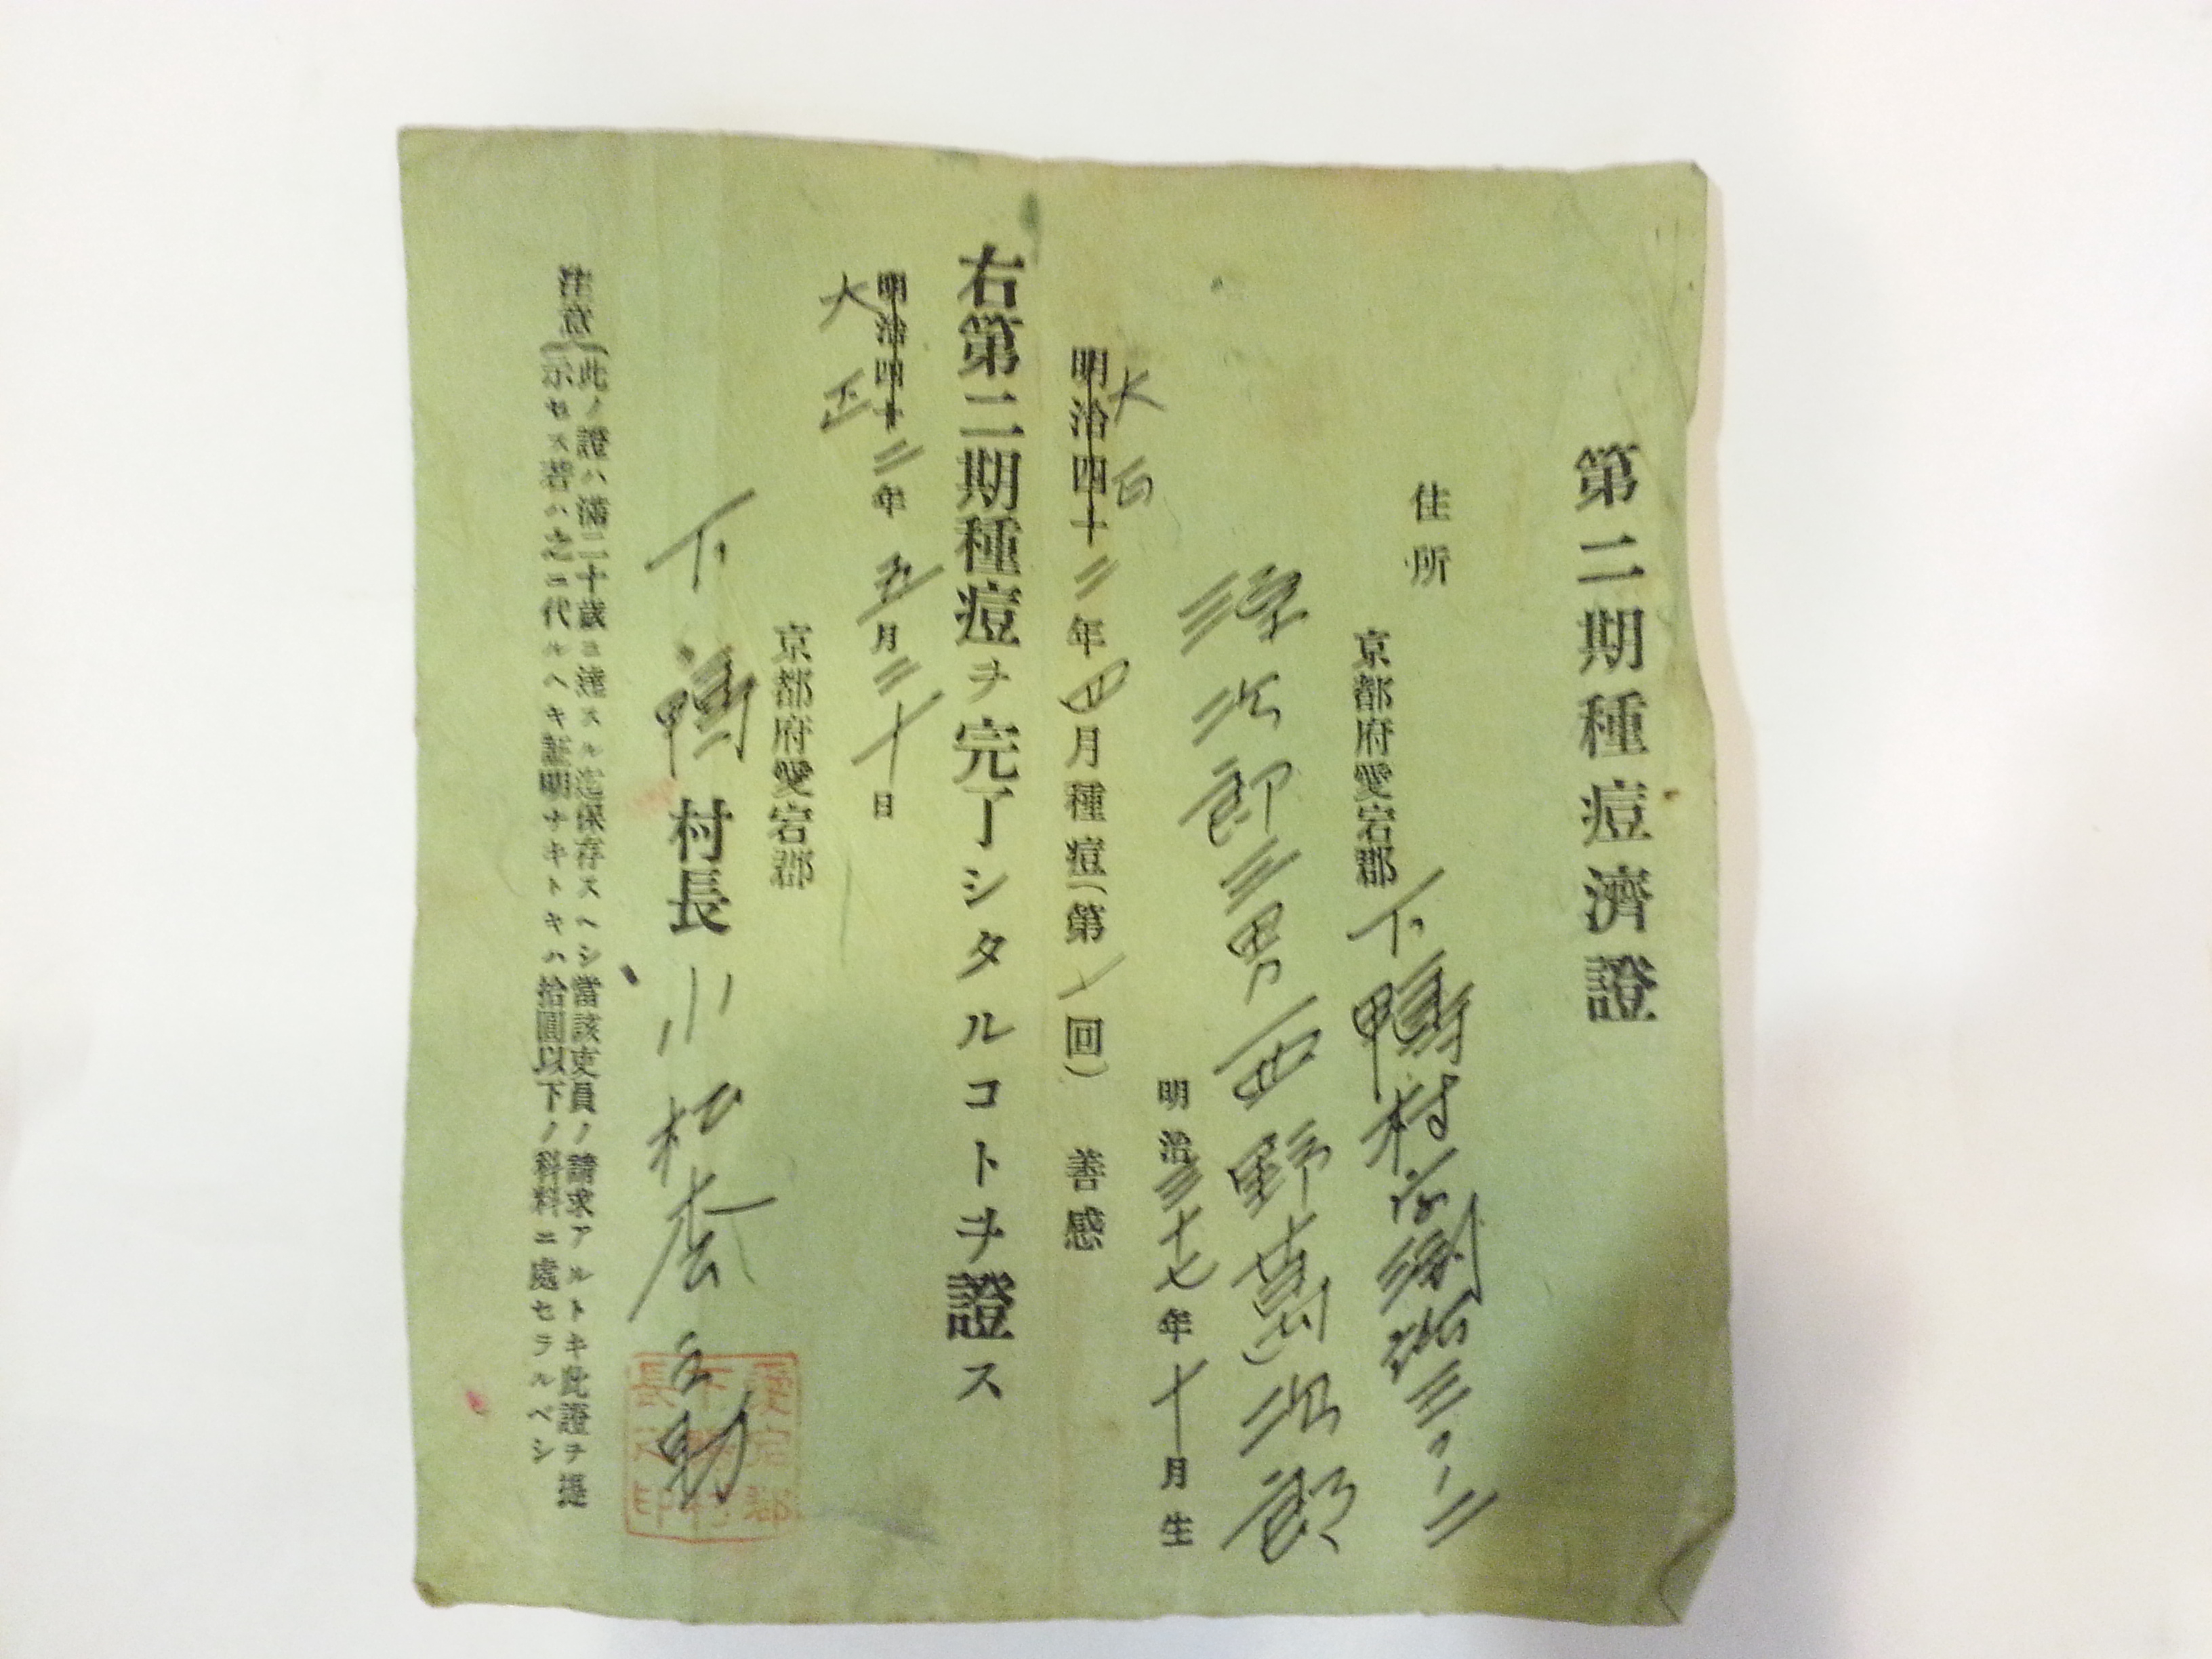 第二期種痘濟證
住所
京都府愛宕郡下鴨村
次郎三男 西野萬次郎
明治三十七年十月生
大正
明治四十二年四月種痘(第一回) 善感
右第二期種痘ヲ完了シタルコトヲ證ス
明治四十二年五月二十日
大正
京都府愛宕郡
下鴨村長 小松
注意
此ノ證ハ滿二十歲ニ達スル迄保存スヘシ當該吏員ノ請求アルトキ此證ヲ提
示セス若ハ之ニ代ルヘキ証明ナキトキハ拾圓以下ノ科料ニ處セラルベシ
愛宕郡
下鴨村
長之印